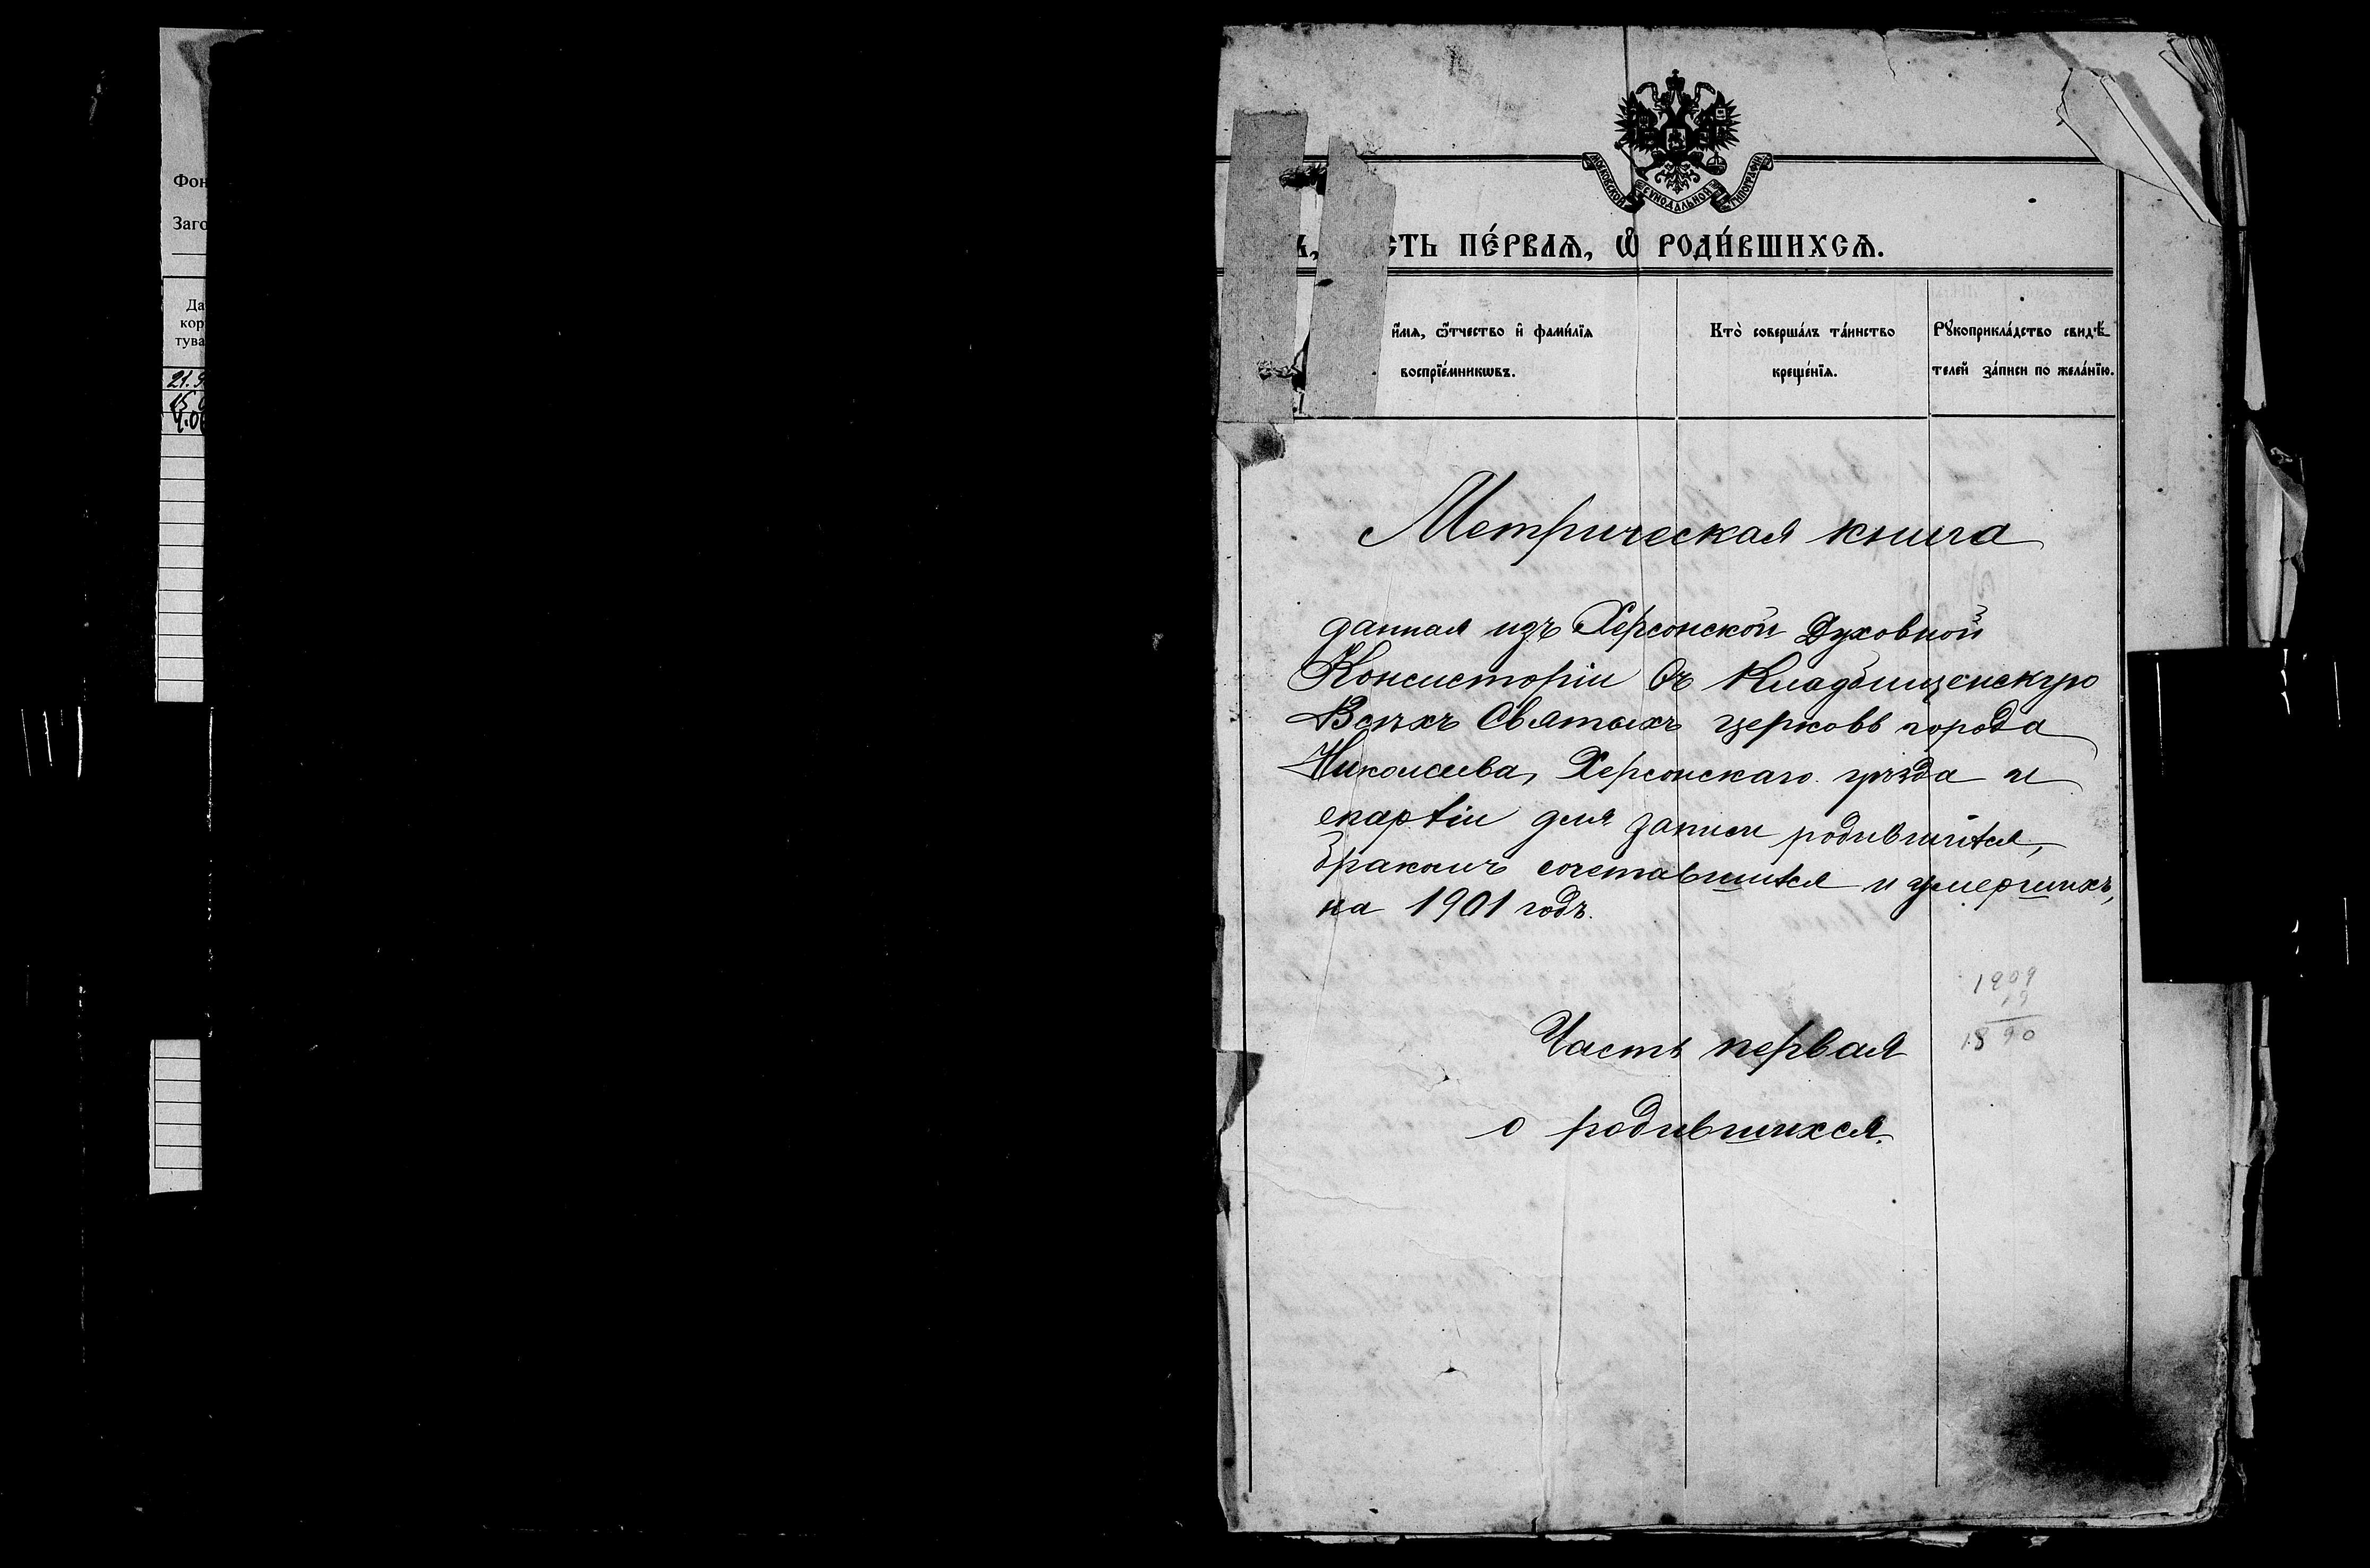 Фон
Заго
Да
кор
тува
21.9
15 0
4.0
МОСКОВСКОЙ СѴНОДАЛЬНОЙ ТИПОГРАФІИ
СТЬ ПЕ́РВАѦ, Ѡ҆ РОДИ́ВШИХСѦ.
и҆́мѧ, ѻ҆́тчество и҆ фами́лїѧ
воспрїе́мникѡвъ.
Кто̀ соверша́лъ та́инство
креще́нїѧ.
Рꙋкоприкла́дство свидѣ́-
телей за́писи по жела́нїю.
Метрическая книга
данная изъ Херсонской Духовной
Консисторіи въ Кладбищенскую
Всѣхъ Святыхъ церковь города
Николаева, Херсонскаго уѣзда и
епархіи для записи родившихся,
бракомъ сочетавшихся и умершихъ,
на 1901 годъ.
1909
19
1890
Часть первая
о родившихся.